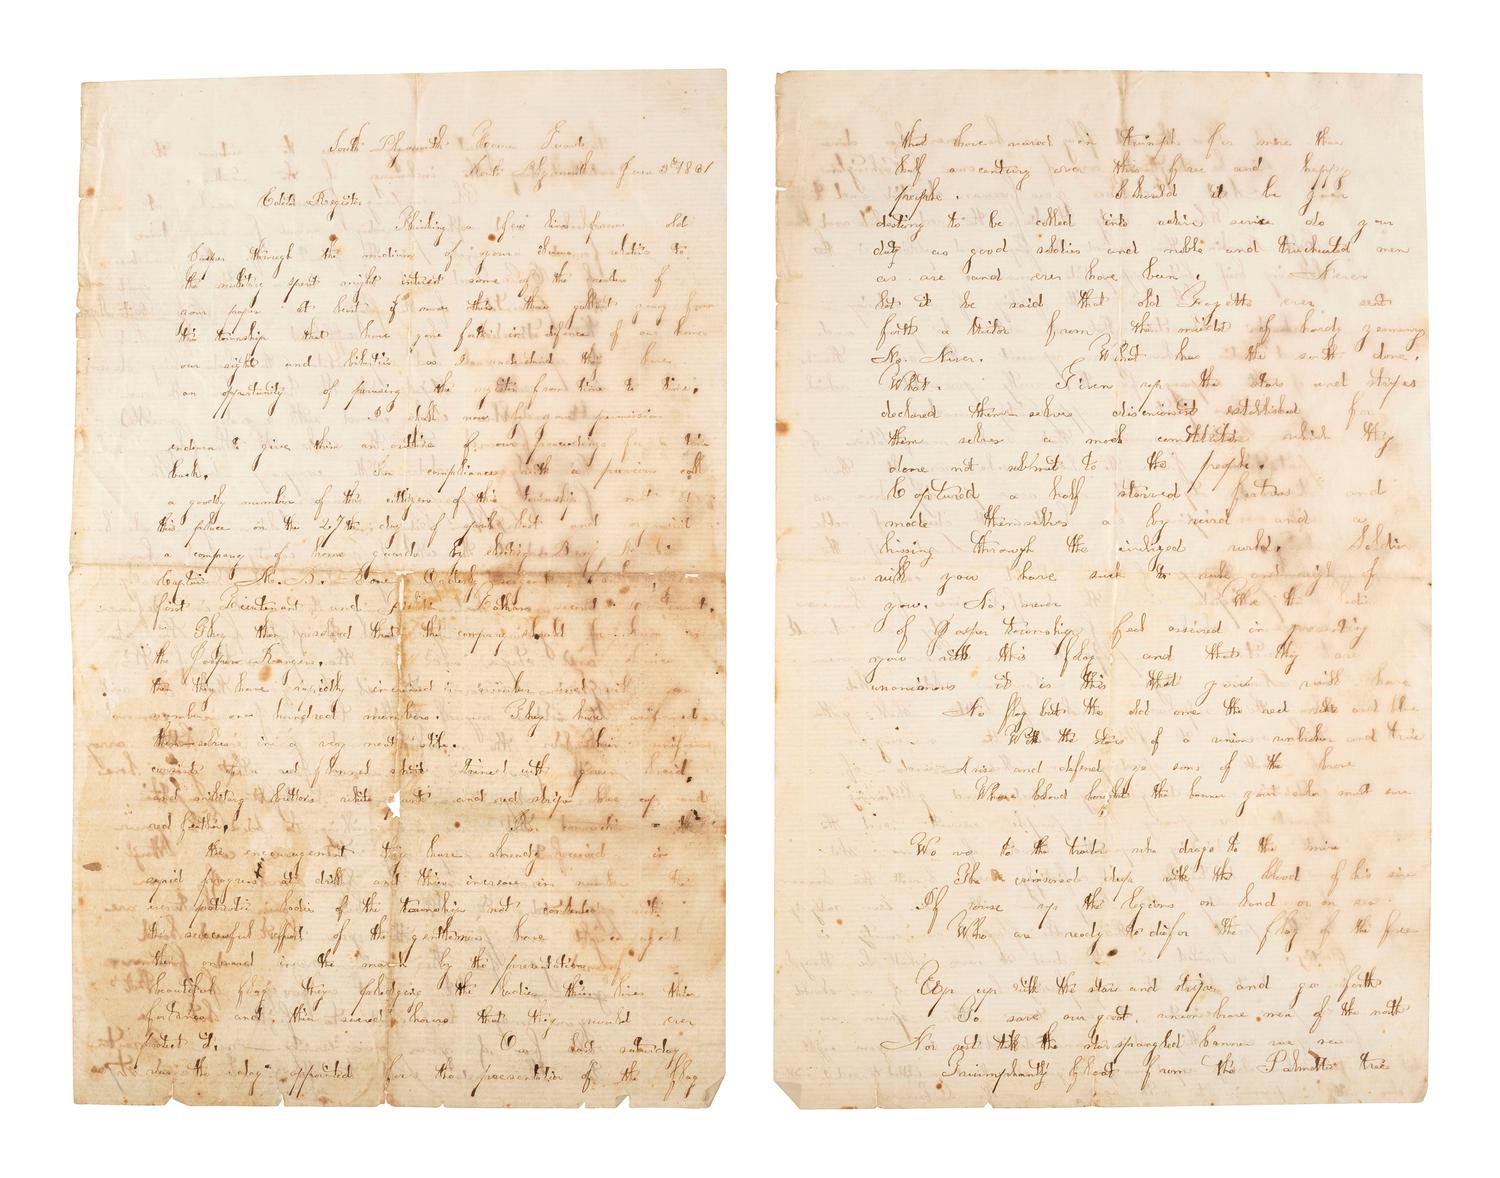 South Plymouth Home Guards
South Plymouth June 3rd 1861
Editor Register
Thinking a few lines from old
Jasper through the medium of your columns relative to
the military spirit might interest some of the readers of
your paper at least of more than
this township that have gone forth in defence of our homes
our rights and liberties as I understand they have
an opportunity of perusing the register from time to time.
I shall now by your permission
endeavor to give them an outline of our proceedings for a time
back. In compliance with a previous call
a goodly number of the citizens of this township met at
this place on the 27th day of April last and organized
a company of home guards by electing
Captain Orderly sergeant
first Lieutenant and
They then resolved that the company should be known as
the Jasper Rangers.
that they have rapidly increased in number until
number one hundred members. They have uniformed
them selves in a very neat style. Their uniform
consists of a red flannel shirt trimed with braid
and military buttons white pants and red stripe blue cap and
red feather.
the encouragement they have already received in
rapid progress at drill and their increase in number the
patriotic ladies of the township not contented with
the successful effort of the gentlemen have
them onward in the march by the presentation
beautiful flag they pledging the ladies their lives their
fortunes and their sacred honors that they would ever
protect it. On last saturday
was the day appointed for the presentation of the flag
that have waved in triumph for more than
half a century over this free and happy
people. Should it be your
destiny to be called into active service do your
duty as good soldiers and noble and true hearted men
as are and ever have been. Never
let it be said that old Fayette ever sent
forth a traitor from the midst of hardy yeomanry
No. Never. What has the south done.
What. Given up the stars and stripes
declared them selves disunionist established for
them selves a mock constitution which they
dare not submit to the people.
Captured a half starved fortress and
made themselves a by word and a
hissing through the civilized world. Soldier
will you have such to rule and reign of
you. No, never We the ladies
of Jasper township feel assured in presenting
you with this flag and that they are
unanimous it is this that you will have
No flag but the old one the red white and blue
With the stars of a union unbroken and true
Arise and defend ye sons of the brave
Whose blood bought the banner your sires must ever

Wo wo to the traitor who drags to the mire
The crimsoned dyes with the blood of his sire
If rouse up the legions on land or on sea
Who are ready to die for the flag of the free

Up up with the stars and stripes and go forth
To save our great union brave men of the north
Nor rest till the star spangled banner we see
Triumphantly float from the Palmetto tree